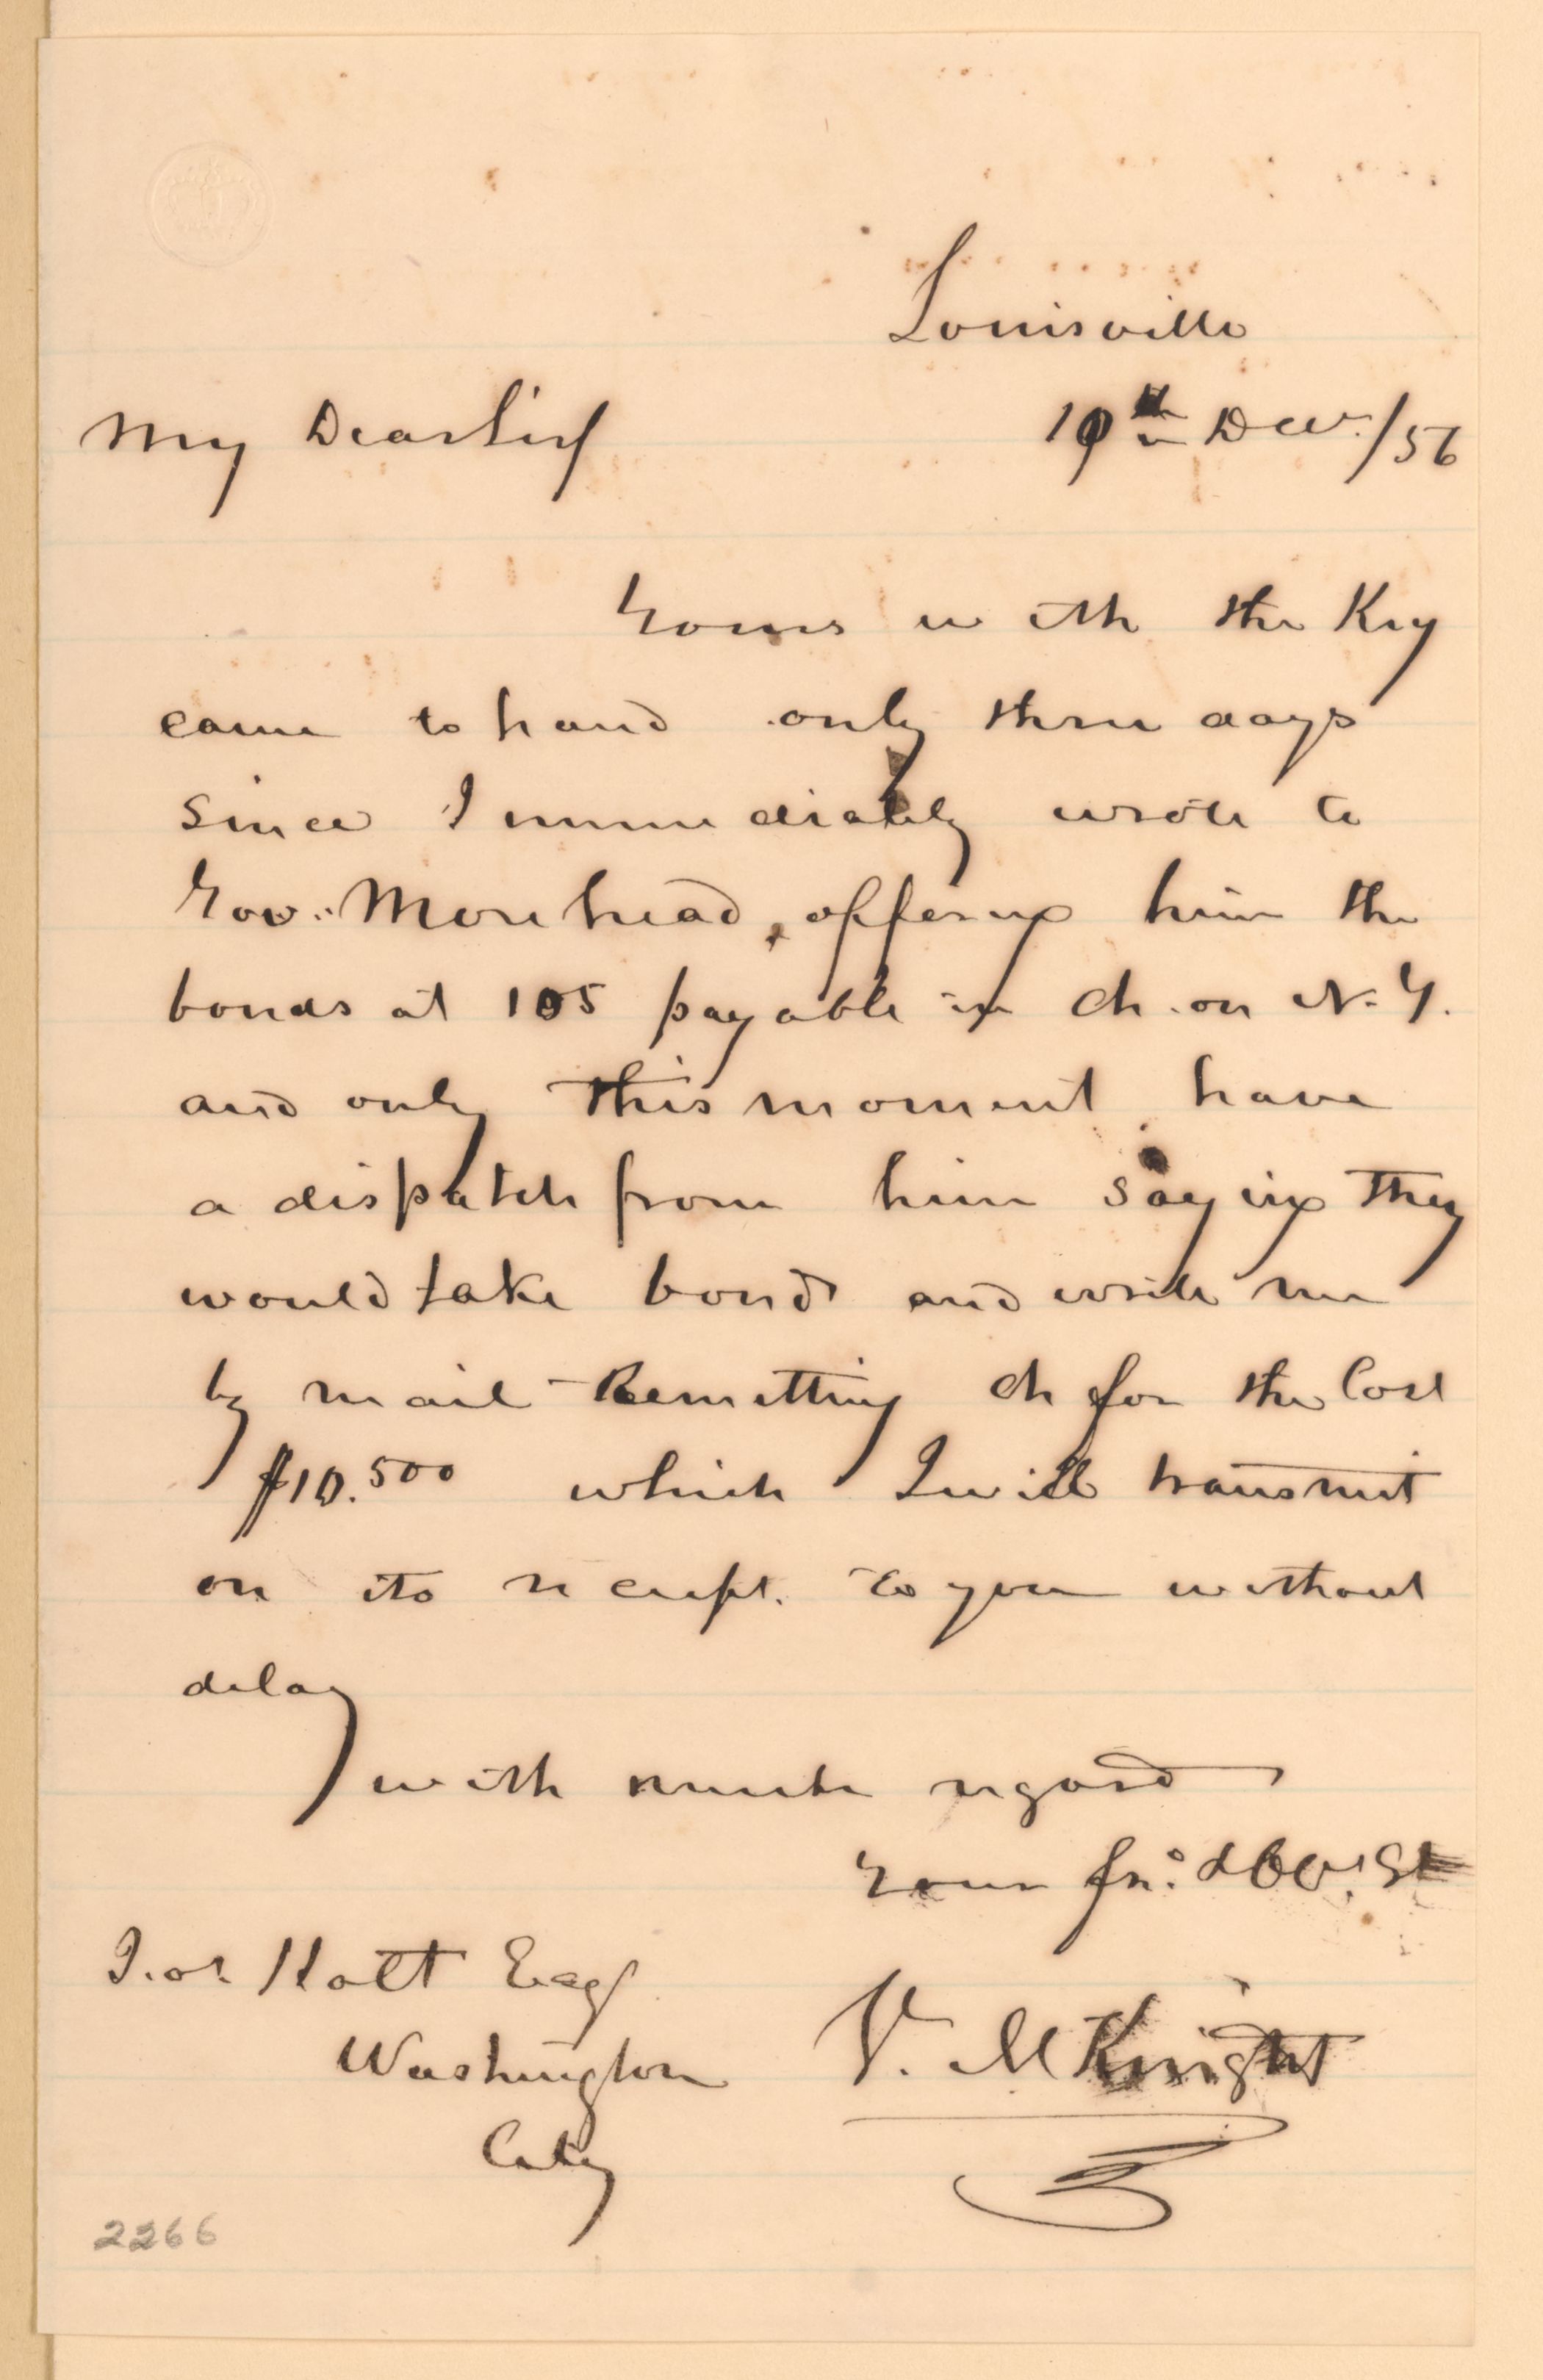 Louisville
My Dear Sir
19th Dec./56
Yours with the Key
came to hand only three days
since I immediately wrote to
Gov. Morehead, offering him the
bonds at 105 payable in ch. on N. Y.
and only this moment have
a dispatch from him saying they
would take bonds and write me
by mail - Remitting ch for the Cost
$10.500 which I will transmit
on its receipt. to you without
delay
with much regard
Your fr. & Ob. St
J. Holt Esq
Washington
City
V. McKnight
2266